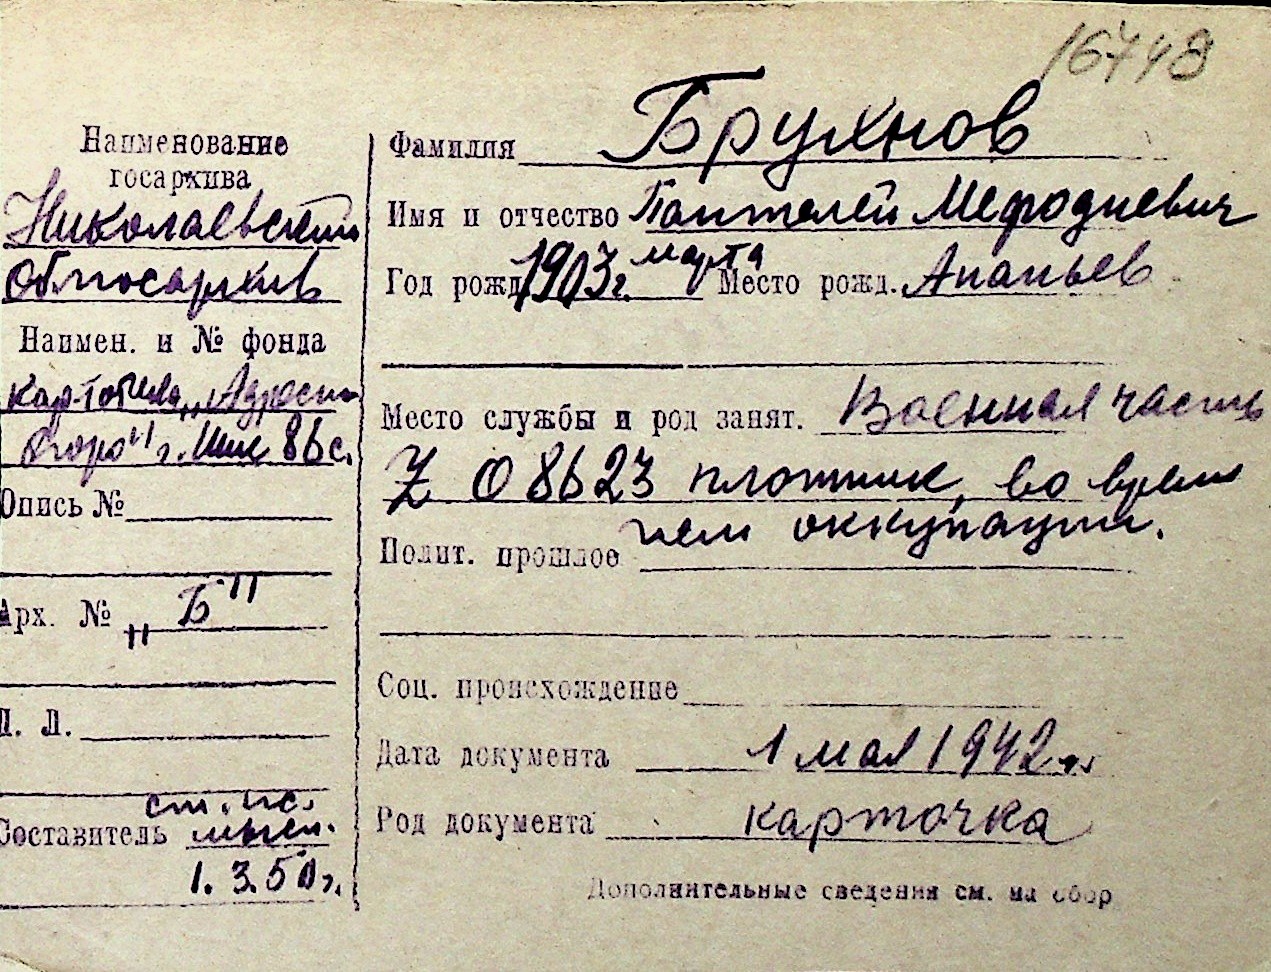 16748
Наименование
госархива
Николаевский
облгосархив
Наимен. и № фонда
картотека „Адресн.
бюро" г. Ник 86 с.
Опись №
Арх. № „Б"
П. Л.
ст. н.с.
Составитель
1.3.50 г.
Фамилия Брухнов
Имя и отчество Пантелей Мефодиевич
Год рожд. 1903 г. марта Место рожд. Ананьев
Место службы и род занят. Военная часть
Z 08623 плотник, во время
нем оккупации.
Полит. прошлое
Соц. происхождение
Дата документа 1 мая 1942 г.
Род документа карточка
Дополнительные сведения см. на обор